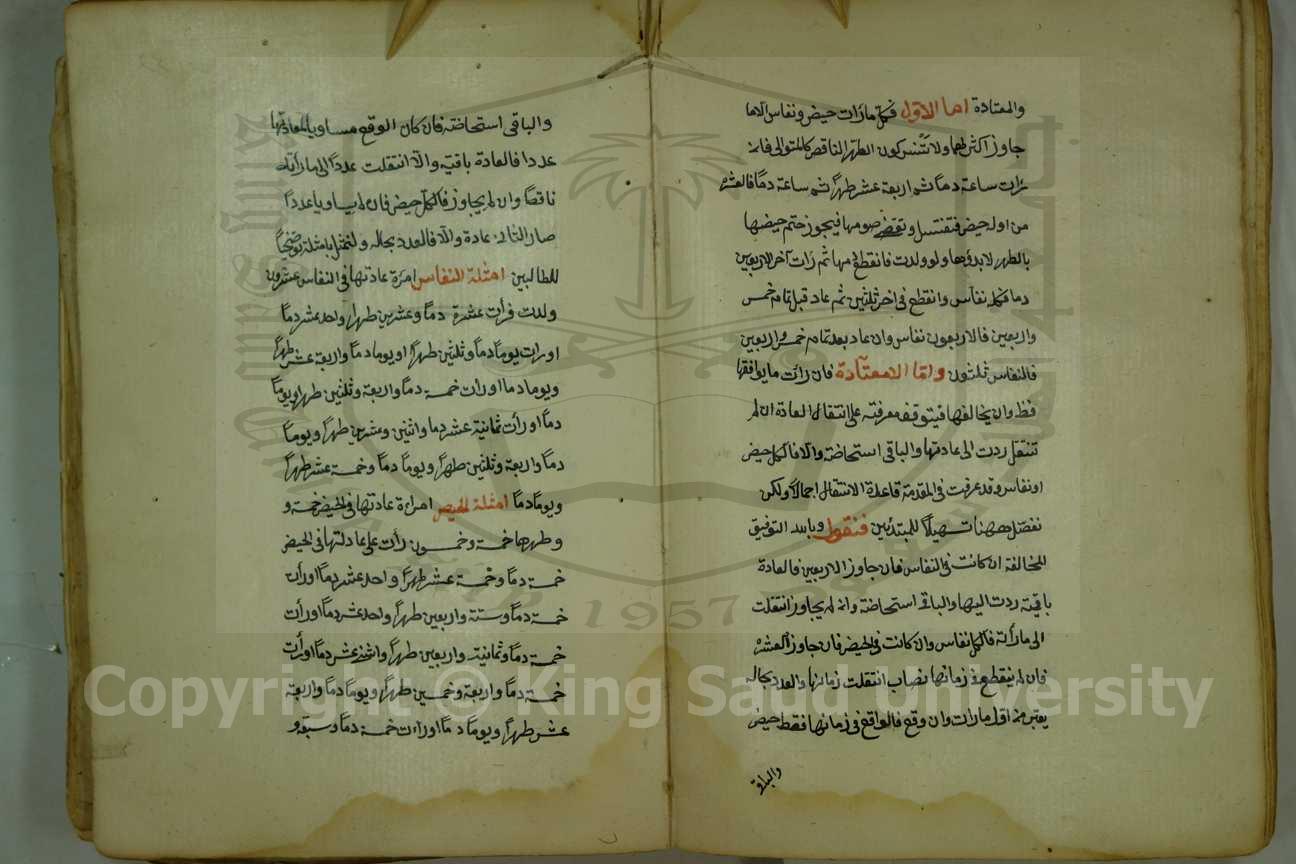 والمعتادة اما الاول فكل ما رات حيض ونفاس الا ما
جاوز اكثرهما ولا تنس كون الطهر الناقص كالمتوالى فان
رات ساعة دما ثم اربعة عشر طهرا ثم ساعة دما فالعشرة
من اوله حيض فتغتسل وتقضى صومها فيجوز ختم حيضها
بالطهر لا بدؤها ولو ولدت فانقطع دمها ثم رات آخر الاربعين
دما فكله نفاس وانقطع فى اخر ثلثين ثم عاد قبل تمام خمس
واربعين فالاربعون نفاس وان عاد بعد تمام خمس واربعين
فالنفاس ثلثون واما المعتادة فان رات ما يوافقها
فظ وان يخالفها فيتوقف معرفته على انتقال العادة ان لم
تنتقل ردت الى عادتها والباقى استحاضة والا فالكل حيض
او نفاس وقد عرفت فى المقدمة قاعدة الانتقال اجمالا ولكن
نفصل ههنا تسهيلا للمبتدئين فنقول وبالله التوفيق
المخالفة ان كانت فى النفاس فان جاوز الاربعين فالعادة
باقية ردت اليها والباقى استحاضة وان لم يجاوز انتقلت
الى ما رأته فالكل نفاس وان كانت فى الحيض فان جاوز العشرة
فان لم يقطع فى زمانها نصاب انتقلت زمانها والعدد بحاله
يعتبر من اول ما رات وان وقع فالواقع فى زمانها فقط حيض
والباقى
والباقى استحاضة فان كان الوقع مساويا لعادتها
عددا فالعادة باقية والا انتقلت عددا الى ما رأته
ناقصا وان لم يجاوز فالكل حيض فان لم يساويا عددا
صار الثانى عادة والا فالعدد بحاله ولنمثل بامثلة توضيحا
للطالبين امثلة النفاس امرة عادتها فى النفاس عشرون
ولدت فرأت عشرة دما وعشرين طهرا واحد عشر دما
او رات يوما دما وثلثين طهرا او يوما دما واربعة عشر طهرا
ويوما دما او رات خمسة دما واربعة وثلثين طهرا ويوما
دما او رأت ثمانية عشر دما واثنين وعشرين طهرا ويوما
دما واربعة وثلثين طهرا ويوما دما وخمسة عشر طهرا
ويوما دما امثلة الحيض امراءة عادتها فى الحيض خمسة و
وطهرها خمسة وخمسون رأت على عادتها فى الحيض
خمسة دما وخمسة عشر طهرا واحد عشر دما او رأت
خمسة دما وستة واربعين طهرا واحد عشر دما او رأت
خمسة دما وثمانية واربعين طهرا واثنى عشر دما او رأت
خمسة دما واربعة وخمسين طهرا ويوما دما واربعة
عشر طهرا ويوما دما او راءت خمسة دما وسبعة و
1957
Copyright © King Saud University